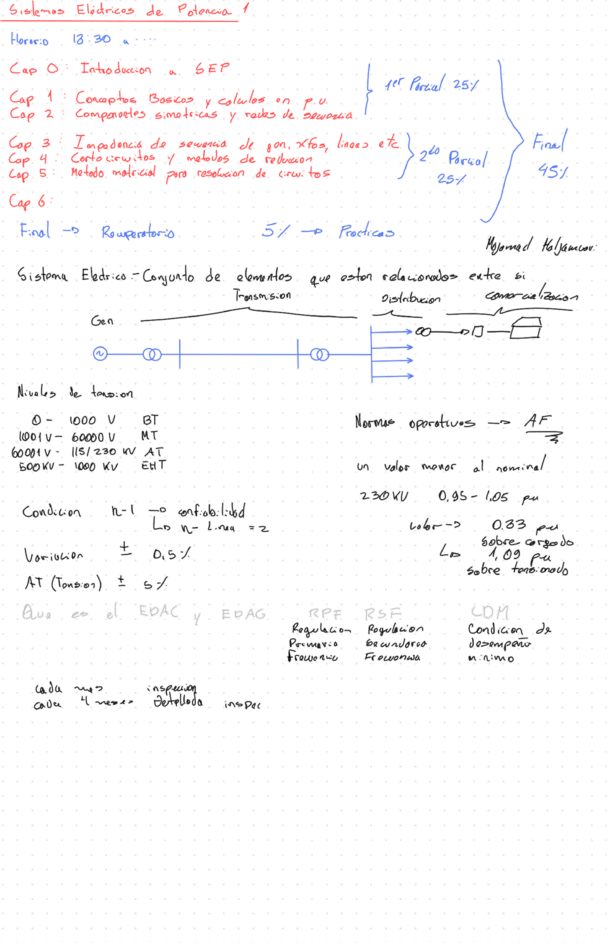 Sistemas Eléctricos de Potencia 1
Horario 18:30 a ....
Cap 0: Introduccion a SEP
1er Parcial 25%
Cap 1: Conceptos Basicos y calculos en p.u.
Cap 2: Componentes simetricas y redes de secuencia
Cap 3: Impedancia de secuencia de gen, xfos, lineas etc
Cap 4: Cortocircuitos y metodos de reducion
Cap 5: Metodo matricial para resolucion de circuitos
2do Parcial
25%
Final
45%
Cap 6:
Final -> Recuperatorio 5% -> Practicas
Sistema Electrico.- Conjunto de elementos que estan relacionados entre si
Transmision Distribucion comercializacion
Gen
Niveles de tension
0 - 1000 V BT
1001 V - 60000 V MT
60001 V - 115/230 kV AT
500 KV - 1000 KV EHT
Normas operativas -> AF
un valor menor al nominal
230 KV 0,95 - 1,05 pu
Condicion n-1 -> confiabilidad
↳ n - Linea = 2
Variacion ± 0,5%
AT (Tension) ± 5%
valor -> 0.33 pu
sobre cargado
↳ 1,09 pu
sobre tensionado
Que es el EDAC y EDAG RPF RSF CDM
Regulacion Regulacion Condicion de
Primaria Secundaria desempeño
Frecuencia Frecuencia minimo
cada mes inspeccion
cada 4 meses Detallada inspec